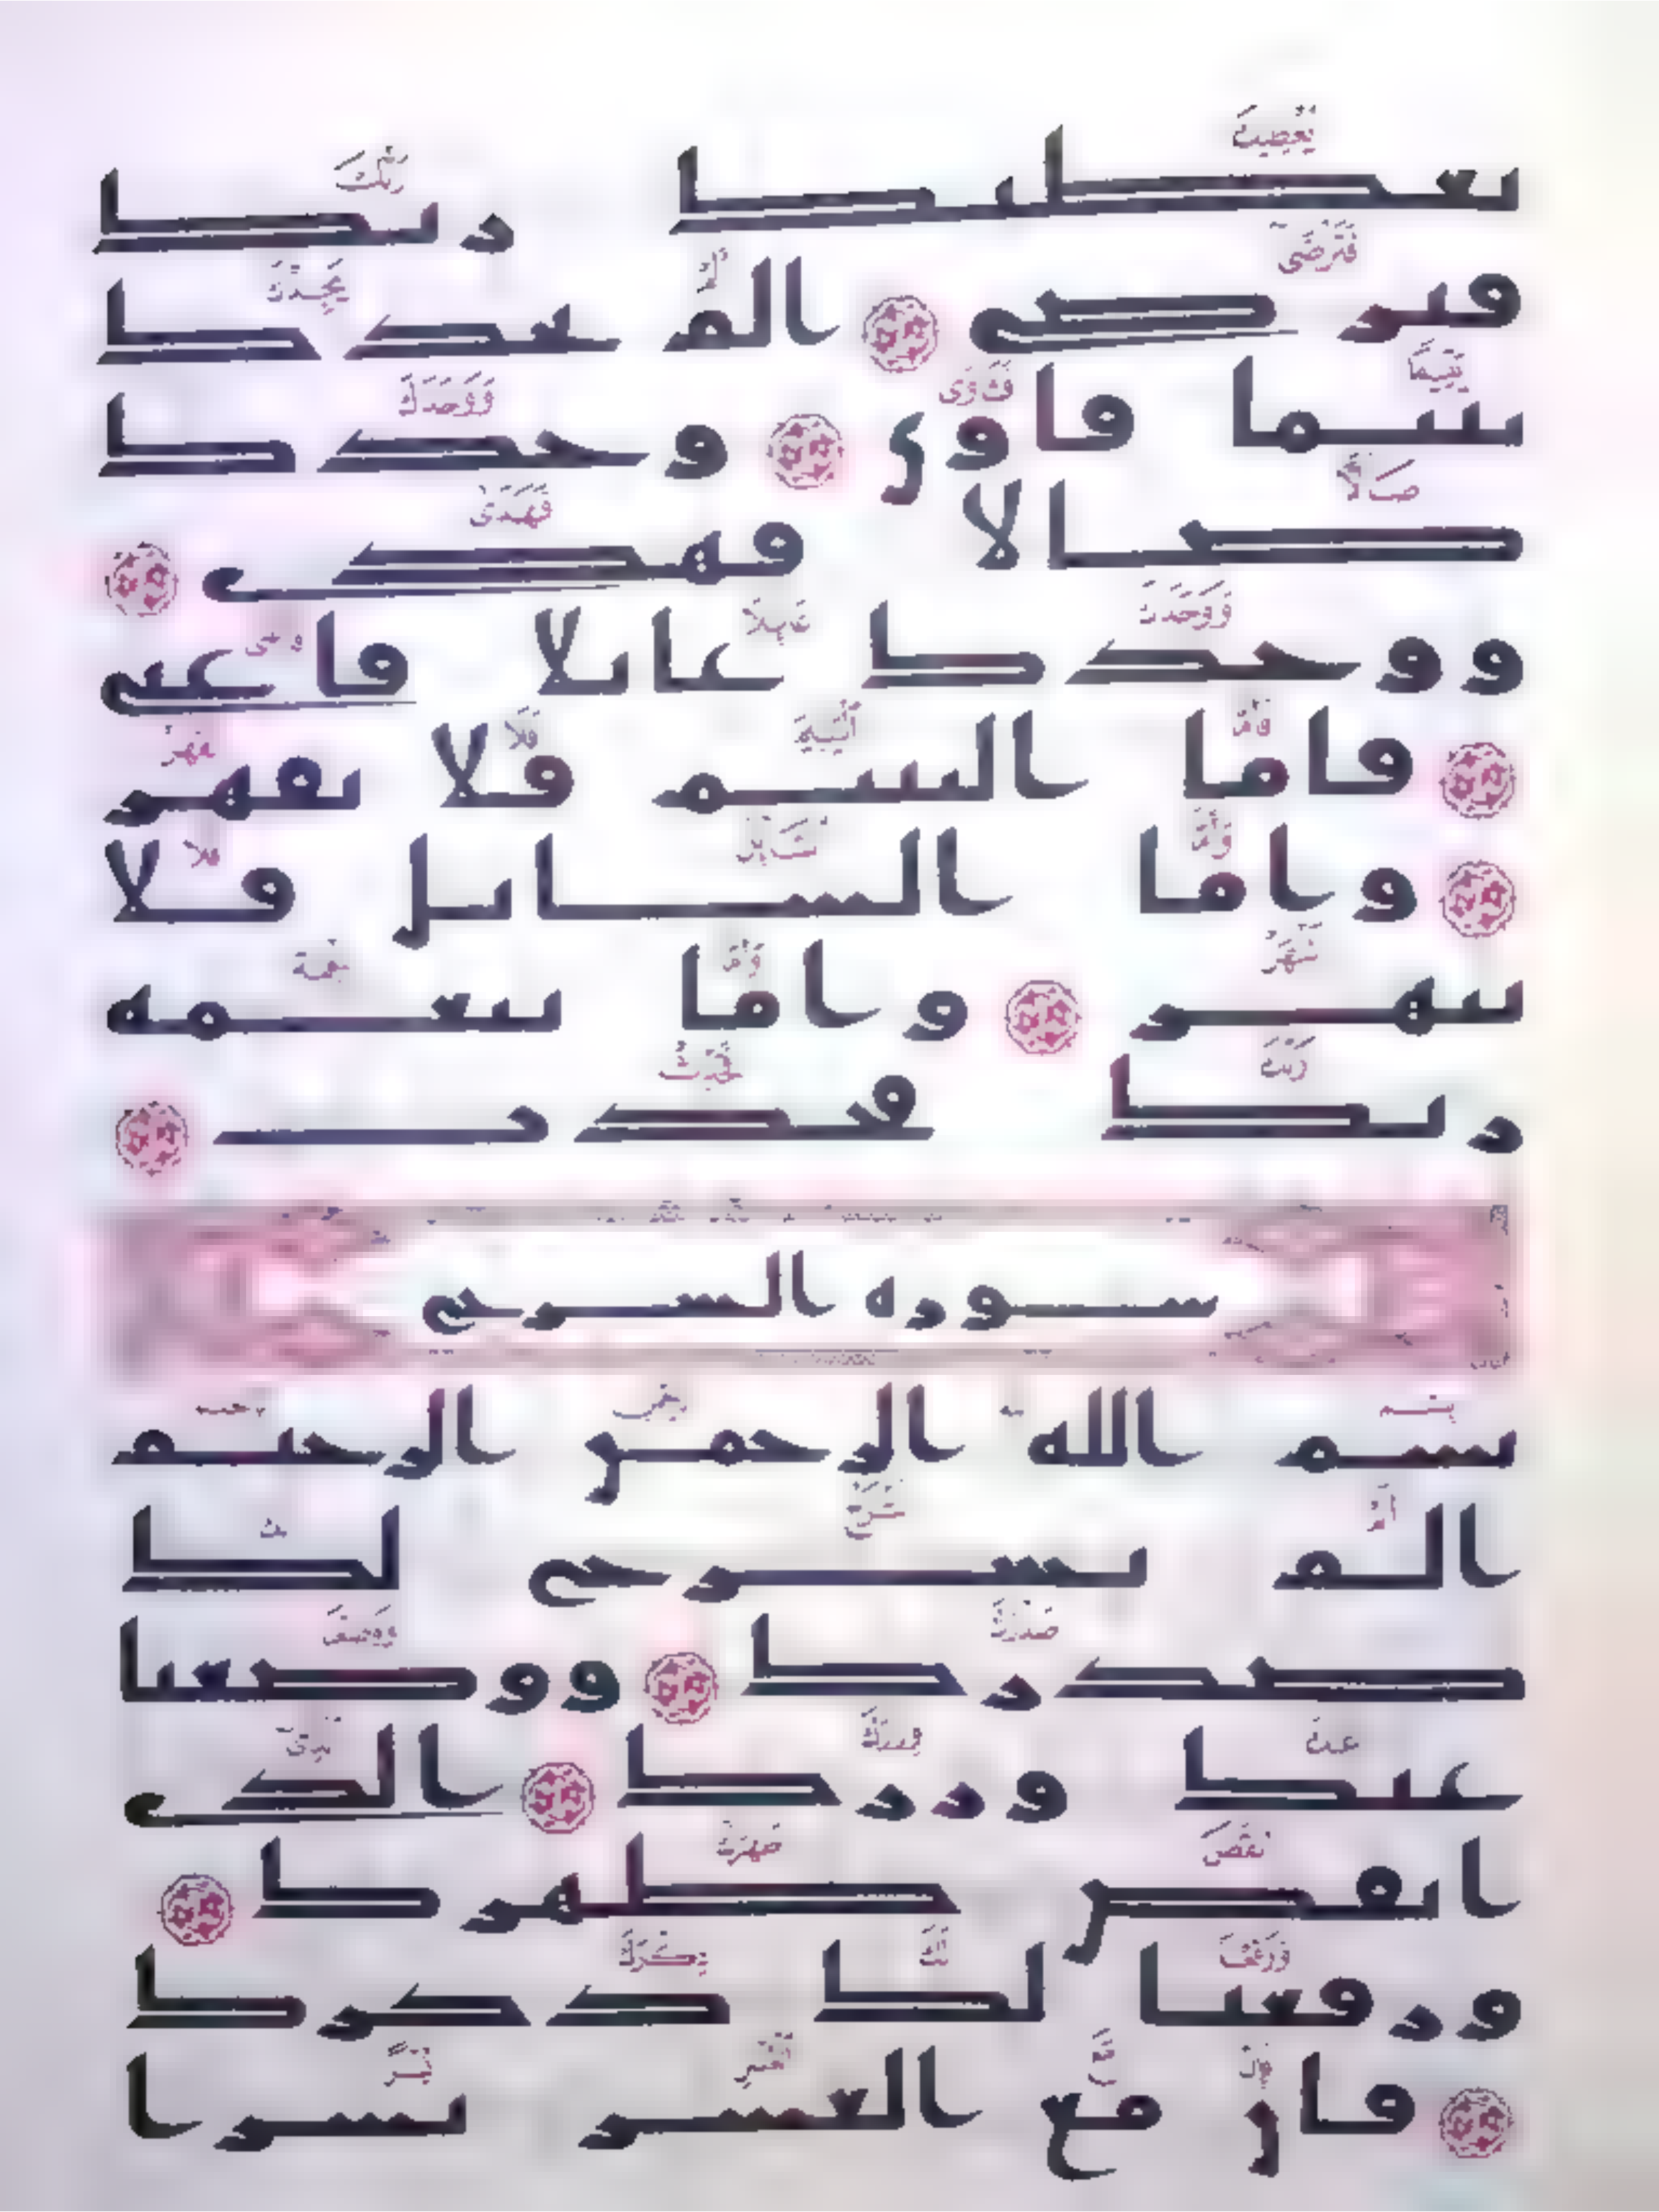 يعطيك ربك
فترضى الم يجدك
يتيما فاوى وجدك
ضالا فهدى
ووجدك عايلا فاغنى
فاما اليتيم فلا تقهر
واما السايل فلا
تنهر واما بنعمه
ربك فحدث
سوره الشرح
بسم الله الرحمن الرحيم
الم نشرح لك
صدرك ووضعنا
عنك وزرك الذى
انقض ظهرك
ورفعنا لك ذكرك
فان مع العسر يسرا